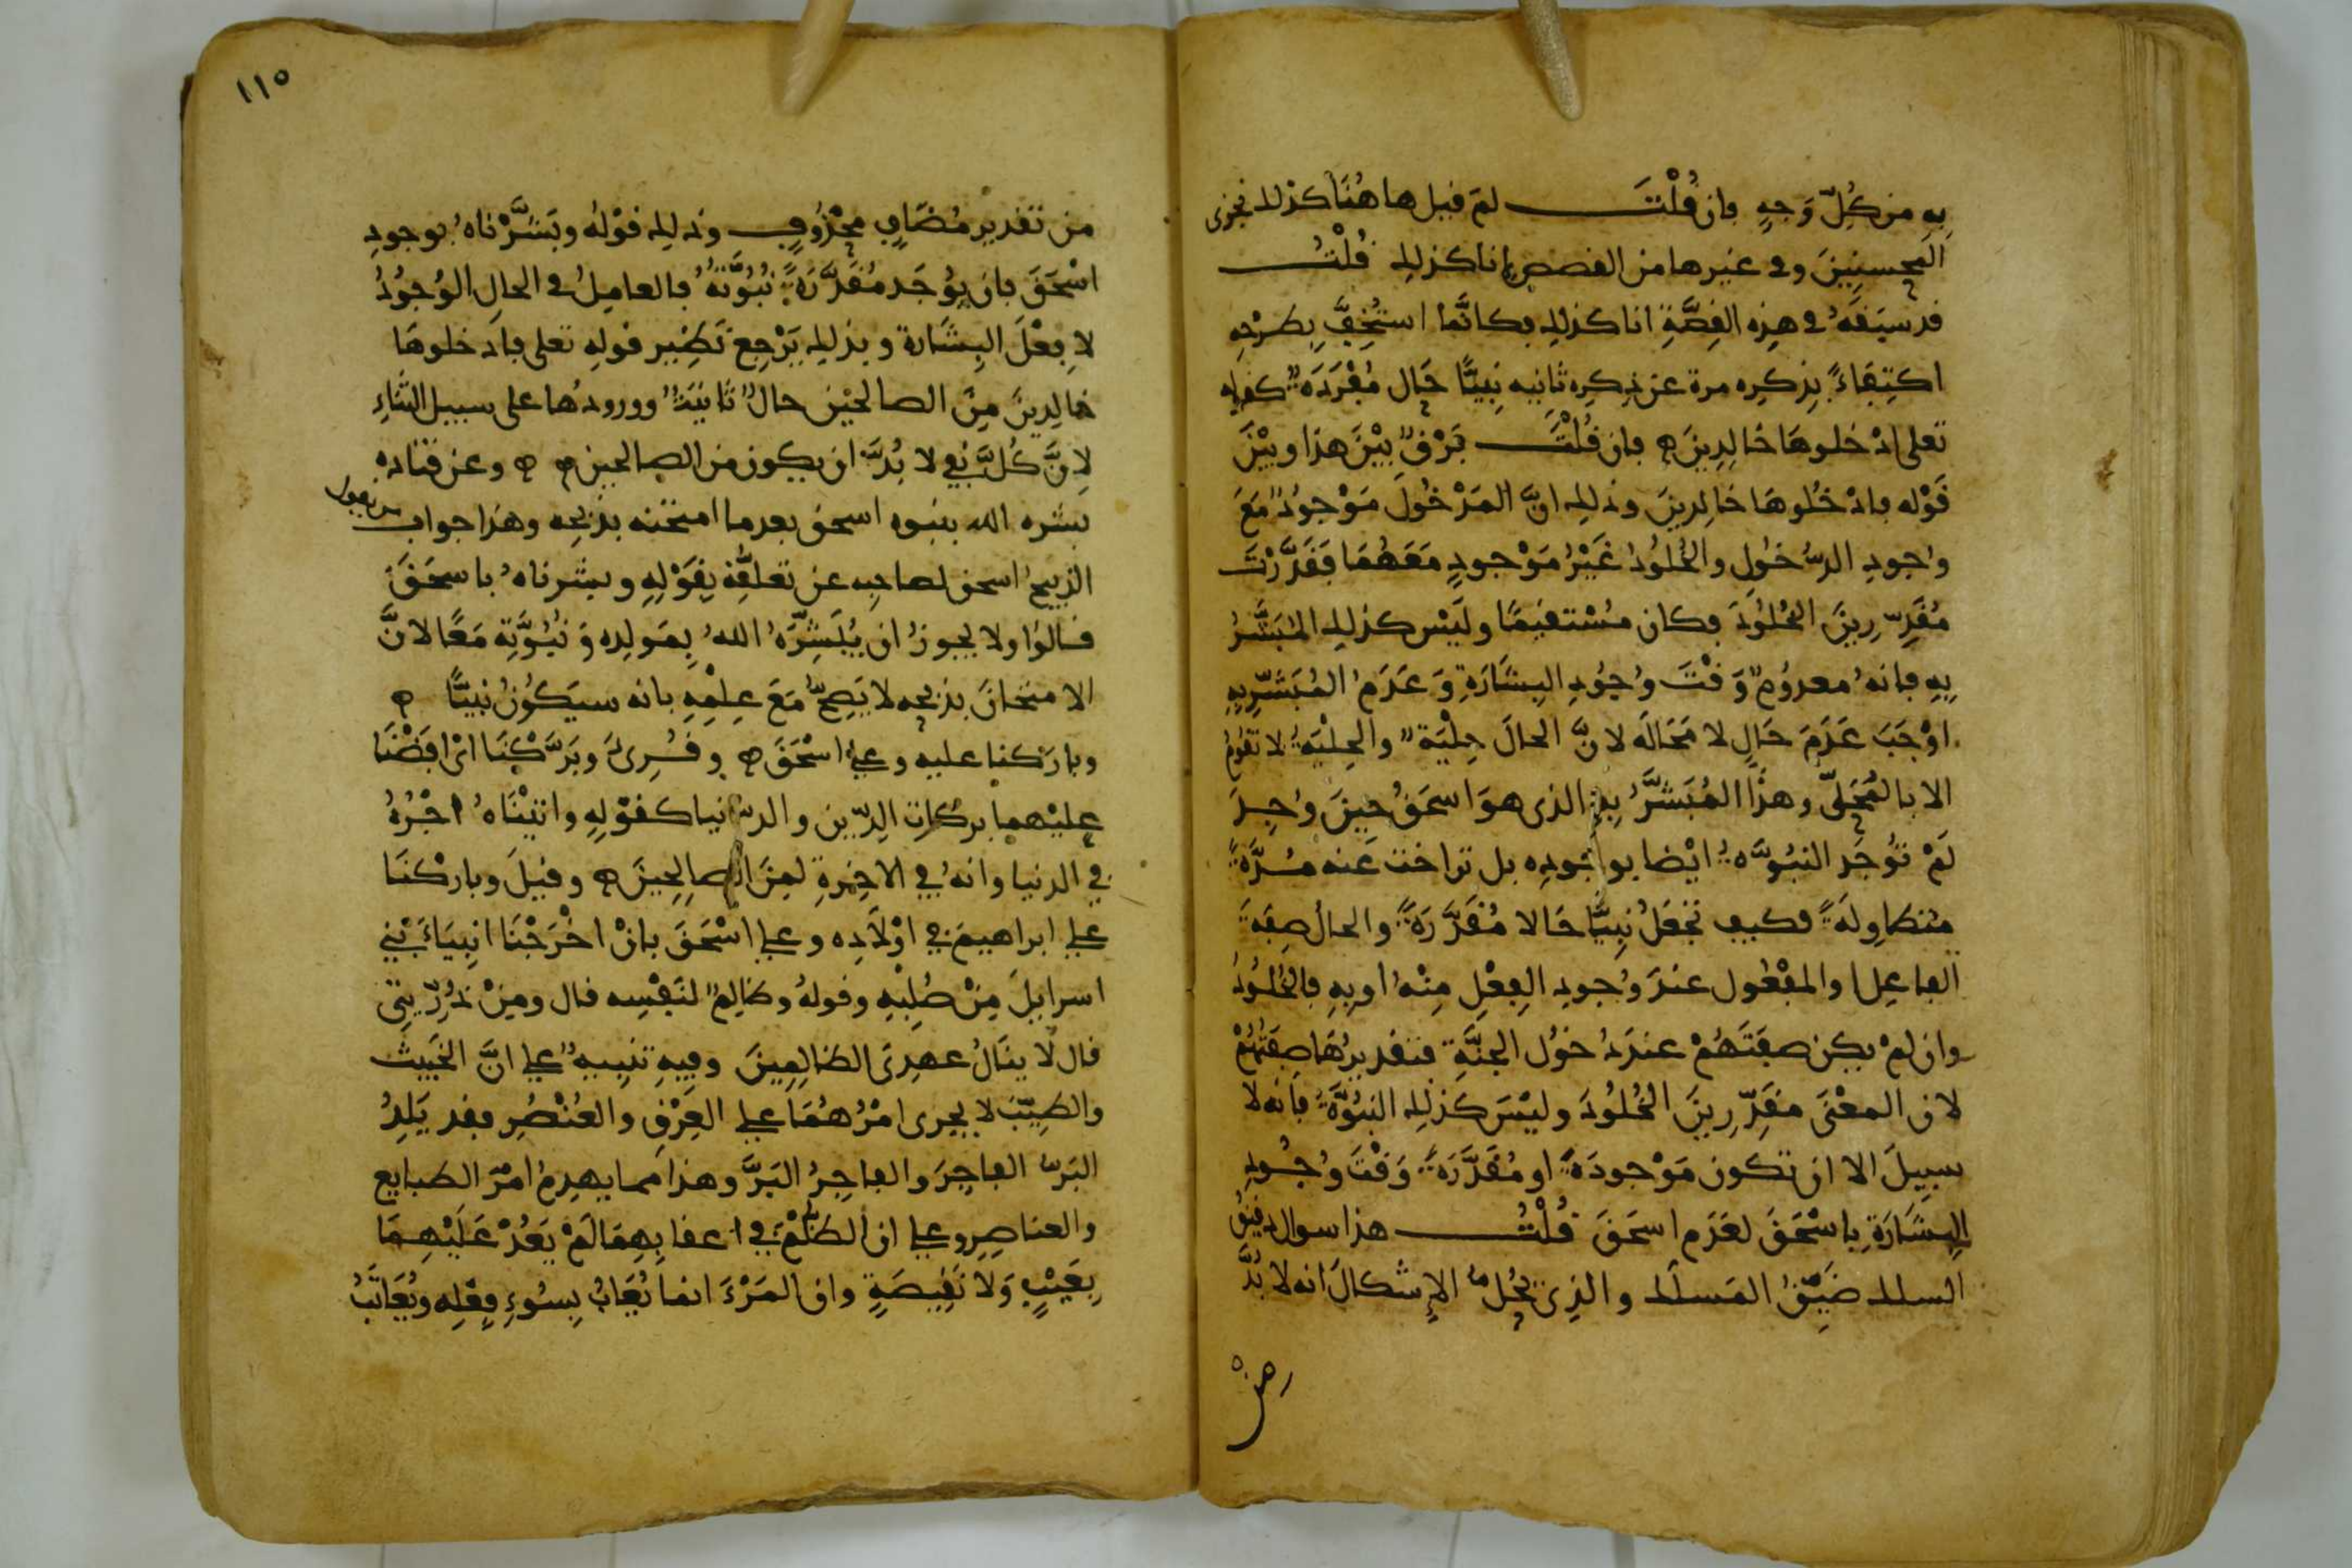 بِهِ من كُلِّ وَجهٍ فان قُلْتَ لمَ قيل هاهُنَا كذلك نجزى
المحسنِينَ وفى غيرها من القصص انا كذلك قُلْتُ
قد سبَقَهُ فى هذِه القِصَّةِ انا كذلك فكانَّما استُخِفَّ بِطرْحِهِ
اكتِفَاءً بذكرِه مرة عن ذِكرِه ثانيه نبِيًّا حَال مُقْدَرَةٌ كقوله
تعلى ادْخلوهَا خَالِدِينَ ه فان قُلْتَ فَرْقٌ بيْنَ هذا وبيْنَ
قَوْله فادْخُلوهَا خالدِينَ وذلك انَّ المَدْخُولَ مَوْجودٌ مَعَ
وُجودِ الدُّخُولِ والخُلُودُ غَيْرُ مَوْجودٍ مَعَهُمَا فَقَدَّرْتَ
مُقَدِّرِينَ الخُلُودَ فكان مُسْتقيمًا وليْس كذلك المُبَشَّرُ
بِهِ فانهُ معدُومٌ وَقْتَ وُجُودِ البِشَارَةِ وَعَدَمُ المُبَشَّرِ بِهِ
اوْجَبَ عَدَمَ حَالِه لا مَحَالَه لانَّ الحالَ حِلْيَةٌ والحِلْيَةُ لا تقُومُ
الا بالمُحَلَّى وهذا المُبَشَّرُ بِهِ الذى هوَ اسحَقُ حِينَ وُجِدَ
لَمْ تُوجَدِ النبُوَّةُ ايْضا بوُجُودِه بل تراخت عَنه مُدَّةً
متطاوِلَةً فكيف نَجْعَلُ نبِيًّا حَالا مُقَدَّرَةً والحالُ صِفَةُ
الفاعِل او المفْعُول عندَ وُجودِ الفِعْلِ مِنْهُ او بِهِ فالخُلُودُ
وان لمْ يكن صِفَتَهُمْ عندَ دُخُول الجنَّةِ فتقديرُهَا صِفَتُهُمْ
لان المعْنَى مُقَدِّرِينَ الخُلُودَ وليْسَ كذلك النبُوَّةُ فانه لا
سبِيلَ الا ان تكون مَوْجودَةً او مُقَدَّرَةً وَقْتَ وُجُودِ
البِشَارَةِ بِاسْحَقَ لعَدَم اسحَقَ قُلْتُ هذا سوال دقيقُ
السلك ضَيِّقُ المَسلَك والذِى يَحُلُّ الإشكالَ انه لا بُدَّ
رهن
١١٥
من تقدير مُضَافٍ محْذُوفٍ وذلك قوْلهُ وبَشَّرْناهُ بوجودِ
اسْحَقَ فان يُوجَد مُقَدَّرَةً نبُوَّتهُ فالعامِلُ فى الحالِ الوُجُودُ
لا فِعْلُ البِشَارة وبذلك يَرْجِع نَظِير قوله تعلى فادخلوهَا
خالِدِينَ مِنَ الصالحيْن حالٌ ثانيَةٌ وورودُها على سبيل الثَنَاءِ
لانَّ كُلَّ نبِيٍّ لا بُدَّ ان يكون من الصالحين ه ه وعن قتاده
بشره الله بنبوه اسحق بعد ما امتحنه بذبحه وهذا جواب من يقول
الذبيحُ اسحق لصاحِبِه عن تعلقِّهِ بِقَوْلِهِ وبشرناهُ باسحَقَ
قالوُا ولا يجوزُ ان يُبَشِّرَهُ اللهُ بمَولِده وَنبُوَّتِه مَعًا لانَّ
الامتحانَ بذبحِه لا يَصِحُّ مَعَ عِلْمِهِ بانه سيَكُونُ نبِيًّا ه
وبارَكنا عليه وعلى اسْحَقَ ه وقُرِىَ وبَرَّكْنَا اىْ افَضْنَا
عليْهما بركَاتِ الدِّين والدُّنيا كقوْلِهِ واتيْنَاهُ اجْرَهُ
فى الدنيا وانهُ فى الاخِرةِ لمِنَ الصالِحينَ ه وقيلَ وباركْنَا
على ابراهيمَ فى اوْلَادِه وعلى اسْحَقَ بانْ اخْرَجْنَا انبِيَاءَ بَنِى
اسراىيلَ مِنْ صُلْبِهِ وقولهُ وظالِمٌ لنَفْسِه قال ومِنْ ذُرِّيَتِى
قال لا ينَالُ عهدِى الظالِمِينَ وفيهِ تنبِيهٌ على انَّ الخَبِيثَ
والطيِّبَ لا يجرى امْرُهُمَا على العِرْقِ والعُنْصُرِ فقد يَلِدُ
البَرُّ الفاجِرَ والفاجِرُ البَرَّ وهذا مما يهدِمُ امْرَ الطبايع
والعناصِرِ وعلى ان الظُلْمَ فى اعقابِهِمَا لَمْ يَعُدْ عَلَيْهِمَا
بِعَيْبٍ وَلا نَقِيصَةٍ وان المَرْءَ انما يُعَابُ بِسُوءِ فِعْلِه ويُعَاتَبُ